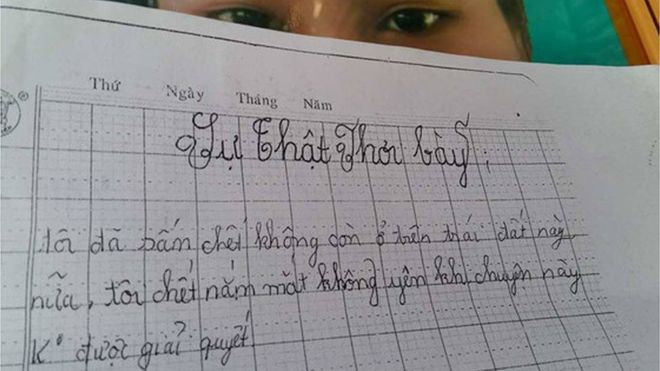 Thứ Ngày Tháng Năm
Sự thật Phơi bày;
tôi đã bắn chết không còn ở trên trái đất này
nữa, tôi chết nắm mắt không yên khi chuyện này
K° được giải quyết.